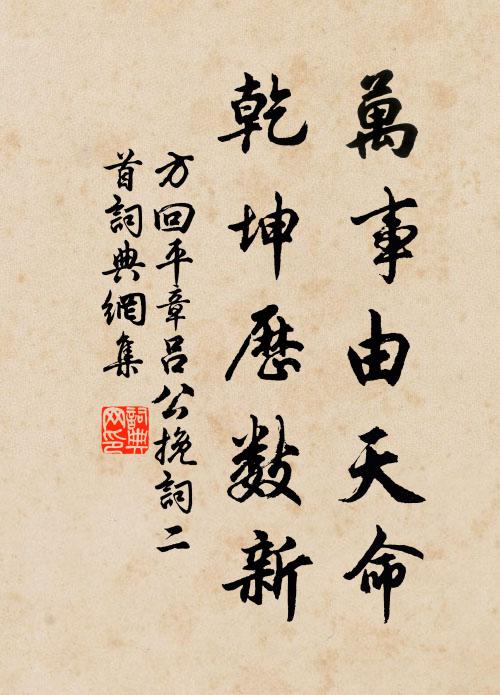 萬事由天命
乾坤歷數新
方回平章呂公挽詞二
首詞典網集
詞典网印